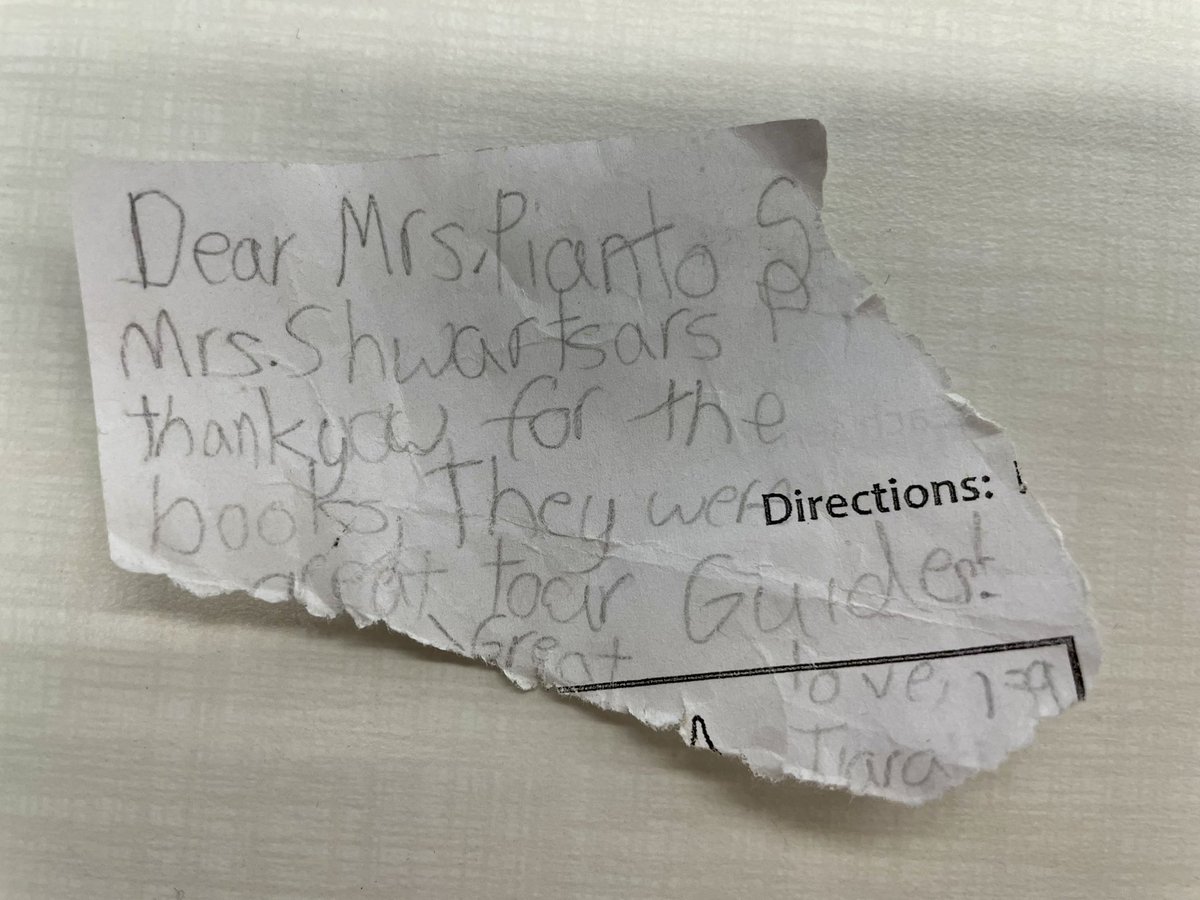 Dear Mrs. Pianto
Mrs. Shwartsars
thankyou for the
books, They were
Directions:
great tour Guides!
Great
love,
Tiara